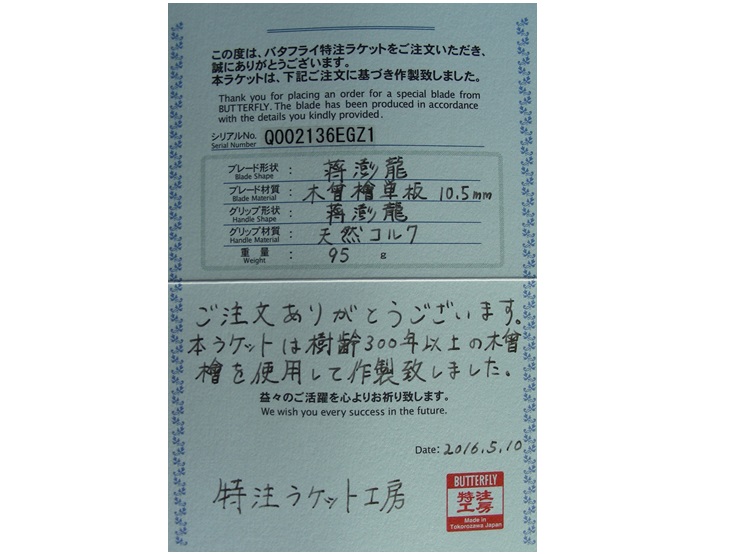 この度は、バタフライ特注ラケットをご注文いただき、
誠にありがとうございます。
本ラケットは、下記ご注文に基づき作製致しました。
Thank you for placing an order for a special blade from
BUTTERFLY. The blade has been produced in accordance
with the details you kindly provided.
シリアルNo. Q002136EGZ1
Serial Number
ブレード形状 : 蒋澎龍
Blade Shape
ブレード材質 : 木曾檜単板 10.5mm
Blade Material
グリップ形状 : 蒋澎龍
Handle Shape
グリップ材質 : 天然コルク
Handle Material
重量 : 95 g
Weight
ご注文ありがとうございます。
本ラケットは樹齢300年以上の木曾
檜を使用して作製致しました。
益々のご活躍を心よりお祈り致します。
We wish you every success in the future.
Date: 2016.5.10
特注ラケット工房
BUTTERFLY
特注
工房
Made in
Tokorozawa Japan